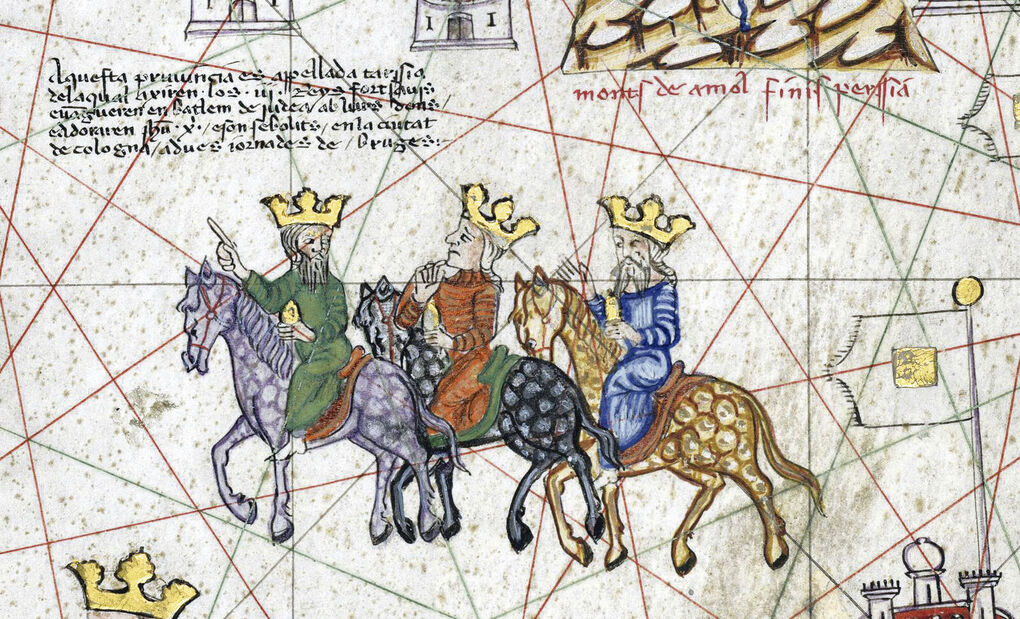 Aquesta prouincia es apellada tarssia
dela qual axiren los .iii. Reys fort sauis
e uangueren en batlem de judea ab lurs dons
e adoraren jhu .x. / e son sebolits / en la ciutat
de cologna / a dues jornades de / bruges:
monts de amol finis perssia